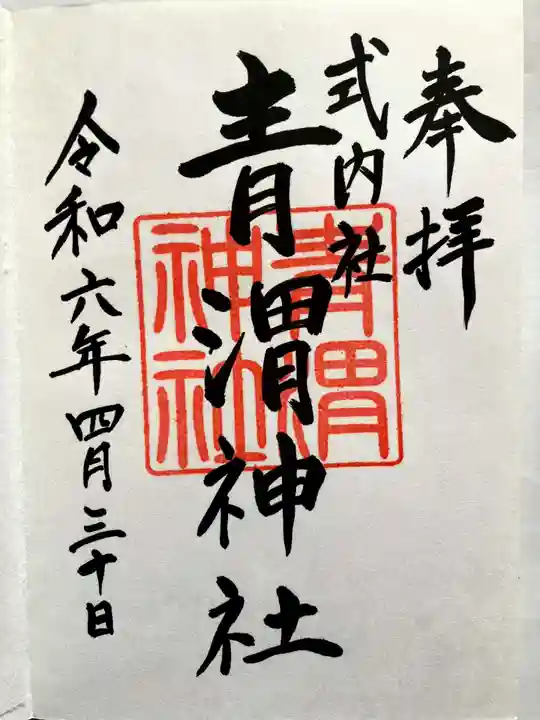 奉拝
式内社
青渭神社
青渭神社
令和六年四月三十日